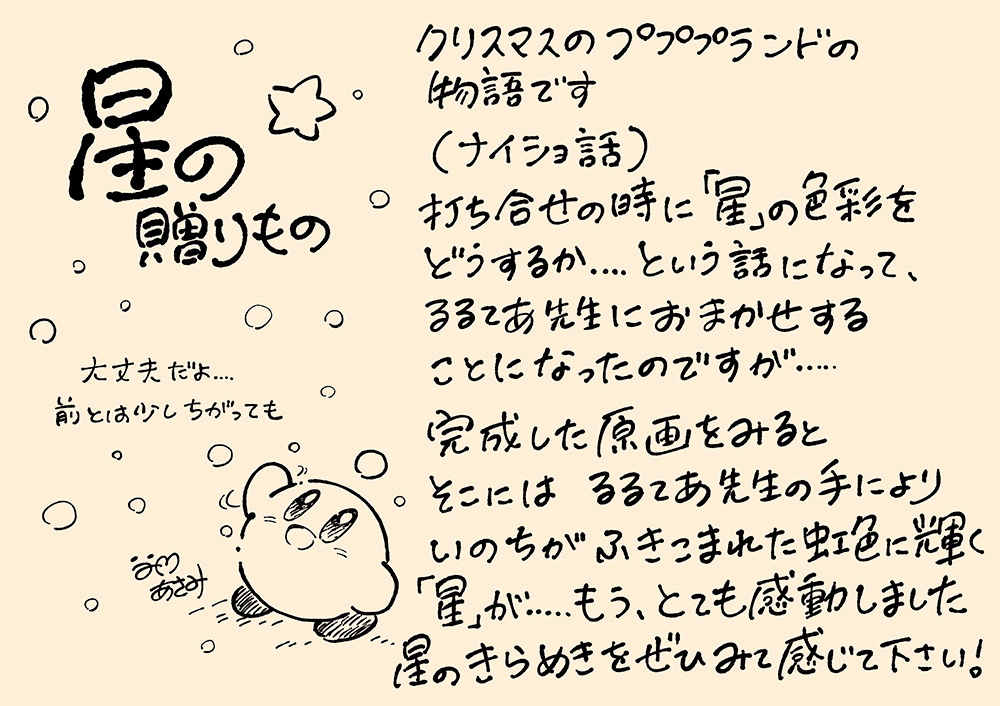 星の
贈りもの
大丈夫だよ....
前とは少しちがっても
あさみ
クリスマスのプププランドの
物語です
(ナイショ話)
打ち合せの時に「星」の色彩を
どうするか....という話になって、
るるてあ先生におまかせする
ことになったのですが.....
完成した原画をみると
そこには るるてあ先生の手により
いのちがふきこまれた虹色に輝く
「星」が.....もう、とても感動しました
星のきらめきをぜひみて感じて下さい!